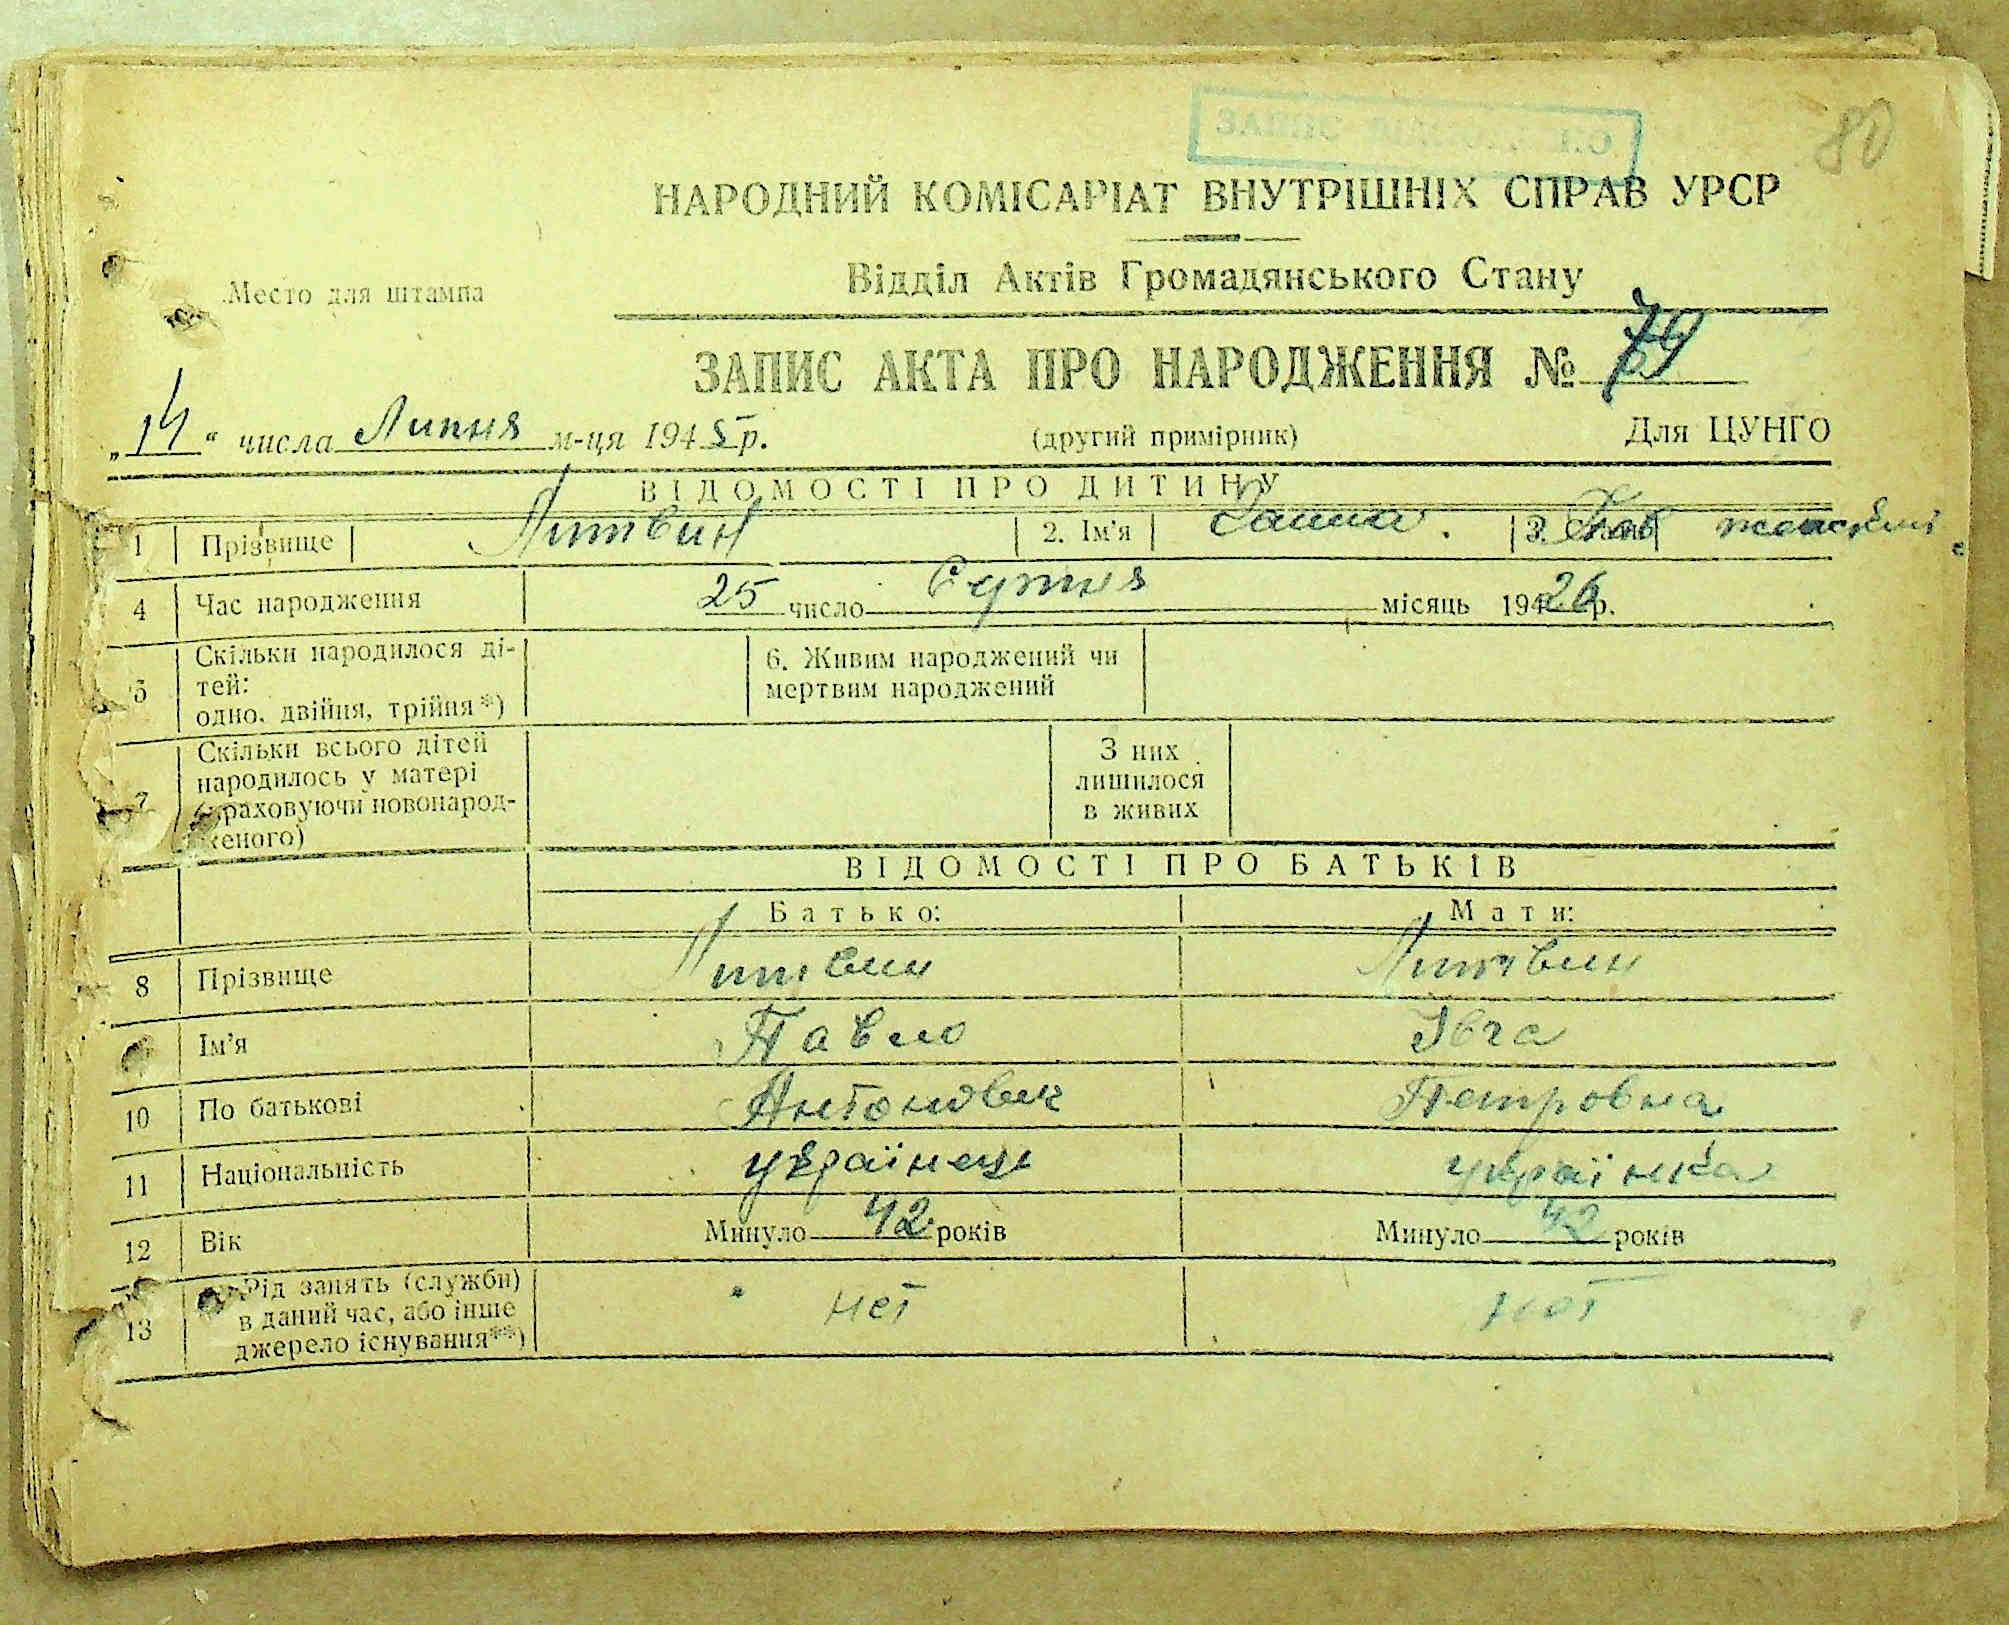 80
НАРОДНИЙ КОМІСАРІАТ ВНУТРІШНІХ СПРАВ УРСР
Место для штампа
Відділ Актів Громадянського Стану
ЗАПИС АКТА ПРО НАРОДЖЕННЯ №
„14“ числа Липня м-ця 1945 р. (другий примірник) Для ЦУНГО
ВІДОМОСТІ ПРО ДИТИНУ
1 Прізвище Литвин 2. Ім'я 3. женский
4 Час народження 25 число місяць 194 26 р.
5 Скільки народилося ді-
тей:
одно, двійня, трійня*)
6. Живим народжений чи
мертвим народжений
7 Скільки всього дітей
народилось у матері
(враховуючи новонарод-
женого)
З них
лишилося
в живих
ВІДОМОСТІ ПРО БАТЬКІВ
Батько: Мати:
8 Прізвище Литвин Литвин
Ім'я Павло Івга
10 По батькові Антонович Петровна
11 Національність українець українка
12 Вік Минуло 42 років Минуло 42 років
13 Рід занять (служби)
в даний час, або інше
джерело існування**)
нет нет